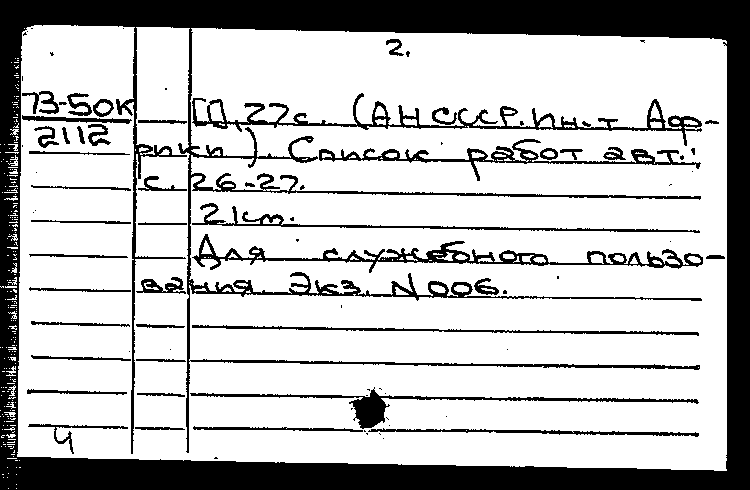 2.
73-50К
2112
[], 27 с. (АН СССР. Ин-т Аф-
рики). Список работ авт.:
с. 26-27.
21 см.
Для служебного пользо-
вания. Экз. N 006.
Ч